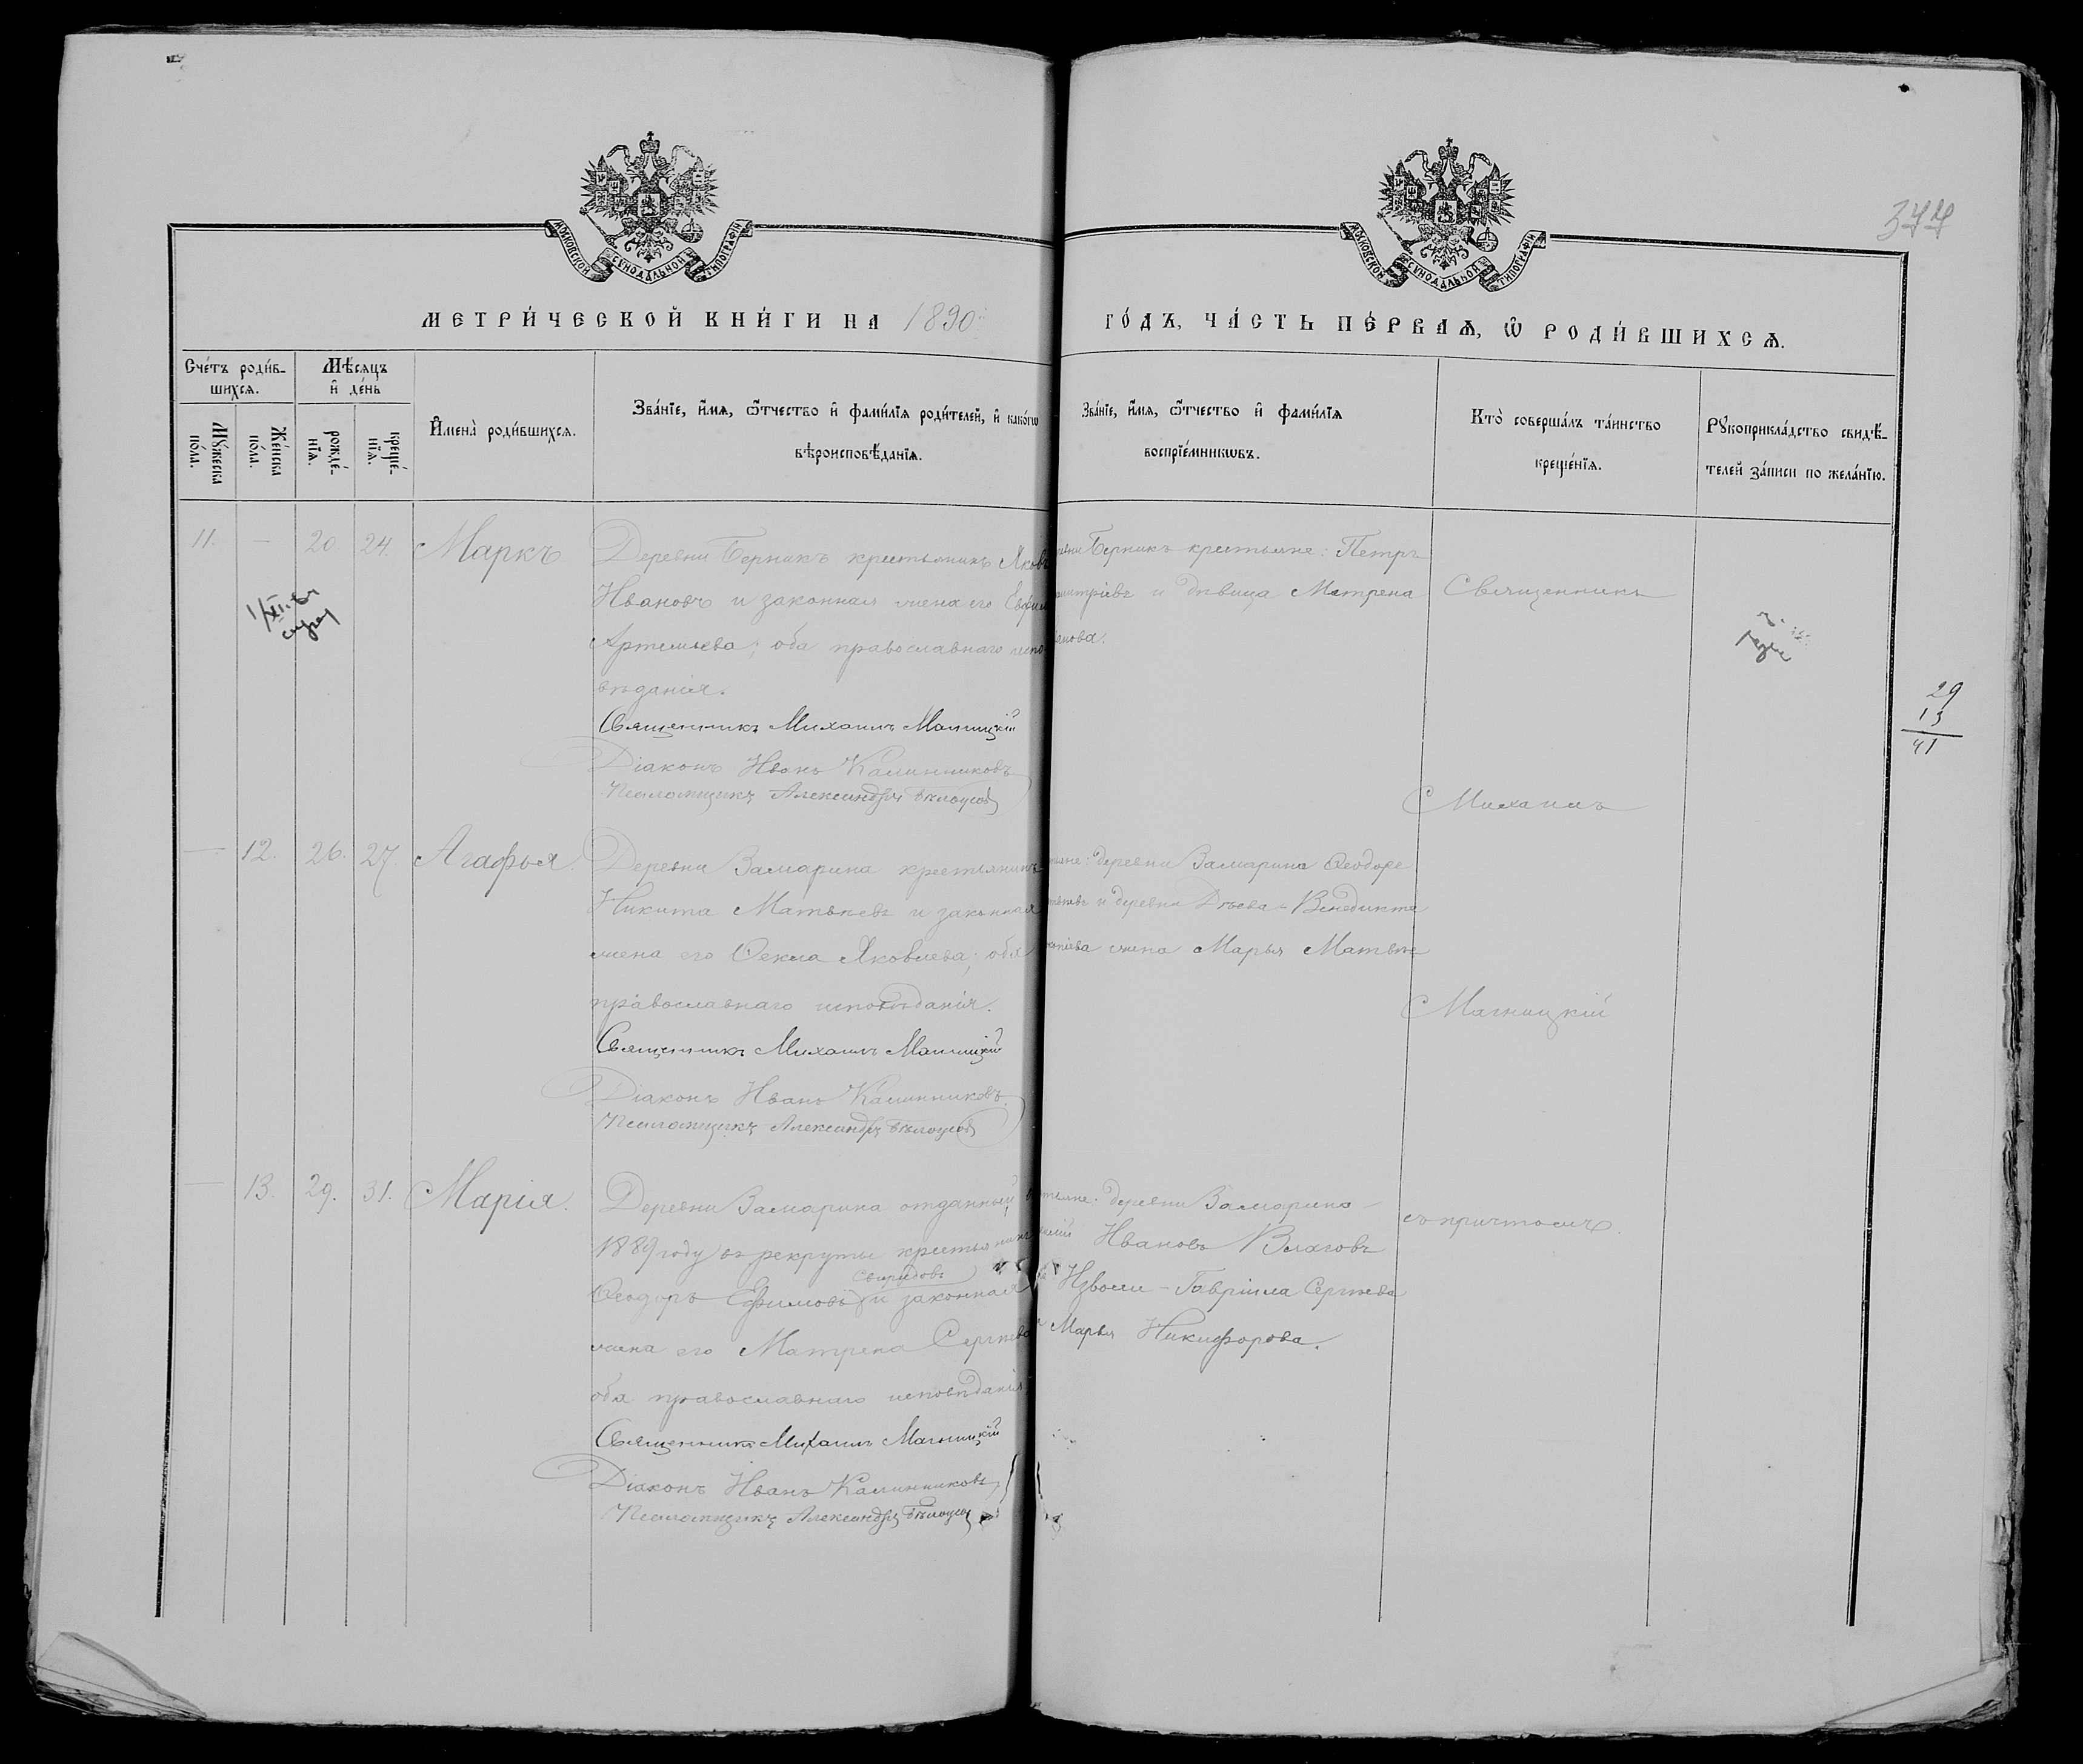 МОСКОВСКОЙ СѴНОДАЛЬНОЙ ТИПОГРАФІИ
МОСКОВСКОЙ СѴНОДАЛЬНОЙ ТИПОГРАФІИ
377
МЕТРИ́ЧЕСКОЙ КНИ́ГИ НА 1890й
ГО́ДЪ, ЧА́СТЬ ПЕ́РВАѦ, Ѡ҆ РОДИ́ВШИХСѦ.
Сче́тъ роди́в-
шихсѧ.
Мѣ́сяцъ
и҆ де́нь
Мꙋ́жеска
по́ла.
Же́нска
по́ла.
рожде́-
нїѧ.
креще́-
нїѧ.
И҆мена̀ роди́вшихсѧ.
Зва́нїе, и҆́мѧ, ѻ҆́тчество и҆ фами́лїѧ роди́телей, и҆ како́гѡ
вѣроисповѣ́данїѧ.
Зва́нїе, и҆́мѧ, ѻ҆́тчество и҆ фами́лїѧ
воспрїе́мникѡвъ.
Кто̀ соверша́лъ та́инство
креще́нїѧ.
Рꙋкоприкла́дство свидѣ́-
телей за́писи по жела́нїю.
11. — 20. 24. Маркъ.
Деревни Берникъ крестьянинъ Яковъ
Ивановъ и законная жена его
Артемьева; оба православнаго испо-
вѣданія.
Священникъ Михаилъ Магницкій
Діаконъ Иванъ Калинниковъ
Псаломщикъ Александръ Бѣлоусовъ
Берникъ крестьяне: Петръ
и дѣвица Матрена
Священникъ
29
13
41
Михаилъ
— 12. 26. 27. Агафья.
Деревни Замарина крестьянинъ
Никита Матвѣевъ и законная
жена его Ѳекла Яковлева; оба
православнаго исповѣданія.
Священникъ Михаилъ Магницкій
Діаконъ Иванъ Калинниковъ.
Псаломщикъ Александръ Бѣлоусовъ
деревни Замарина Ѳеодоръ
и деревни Венедикта
жена Марья Матвѣе
Магницкій
— 13. 29. 31. Марія.
Деревни Замарина отданный въ
1889 году въ рекруты крестьянинъ
Свиридовъ
Ѳеодоръ Ефимовъ и законная
жена его Матрена Сергѣева
оба православнаго исповѣданія
Священникъ Михаилъ Магницкій
Діаконъ Иванъ Калинниковъ
Псаломщикъ Александръ Бѣлоусовъ
деревни Замарина
Ивановъ
Гавріила Сергѣева
Марья Никифорова.
съ причтомъ.